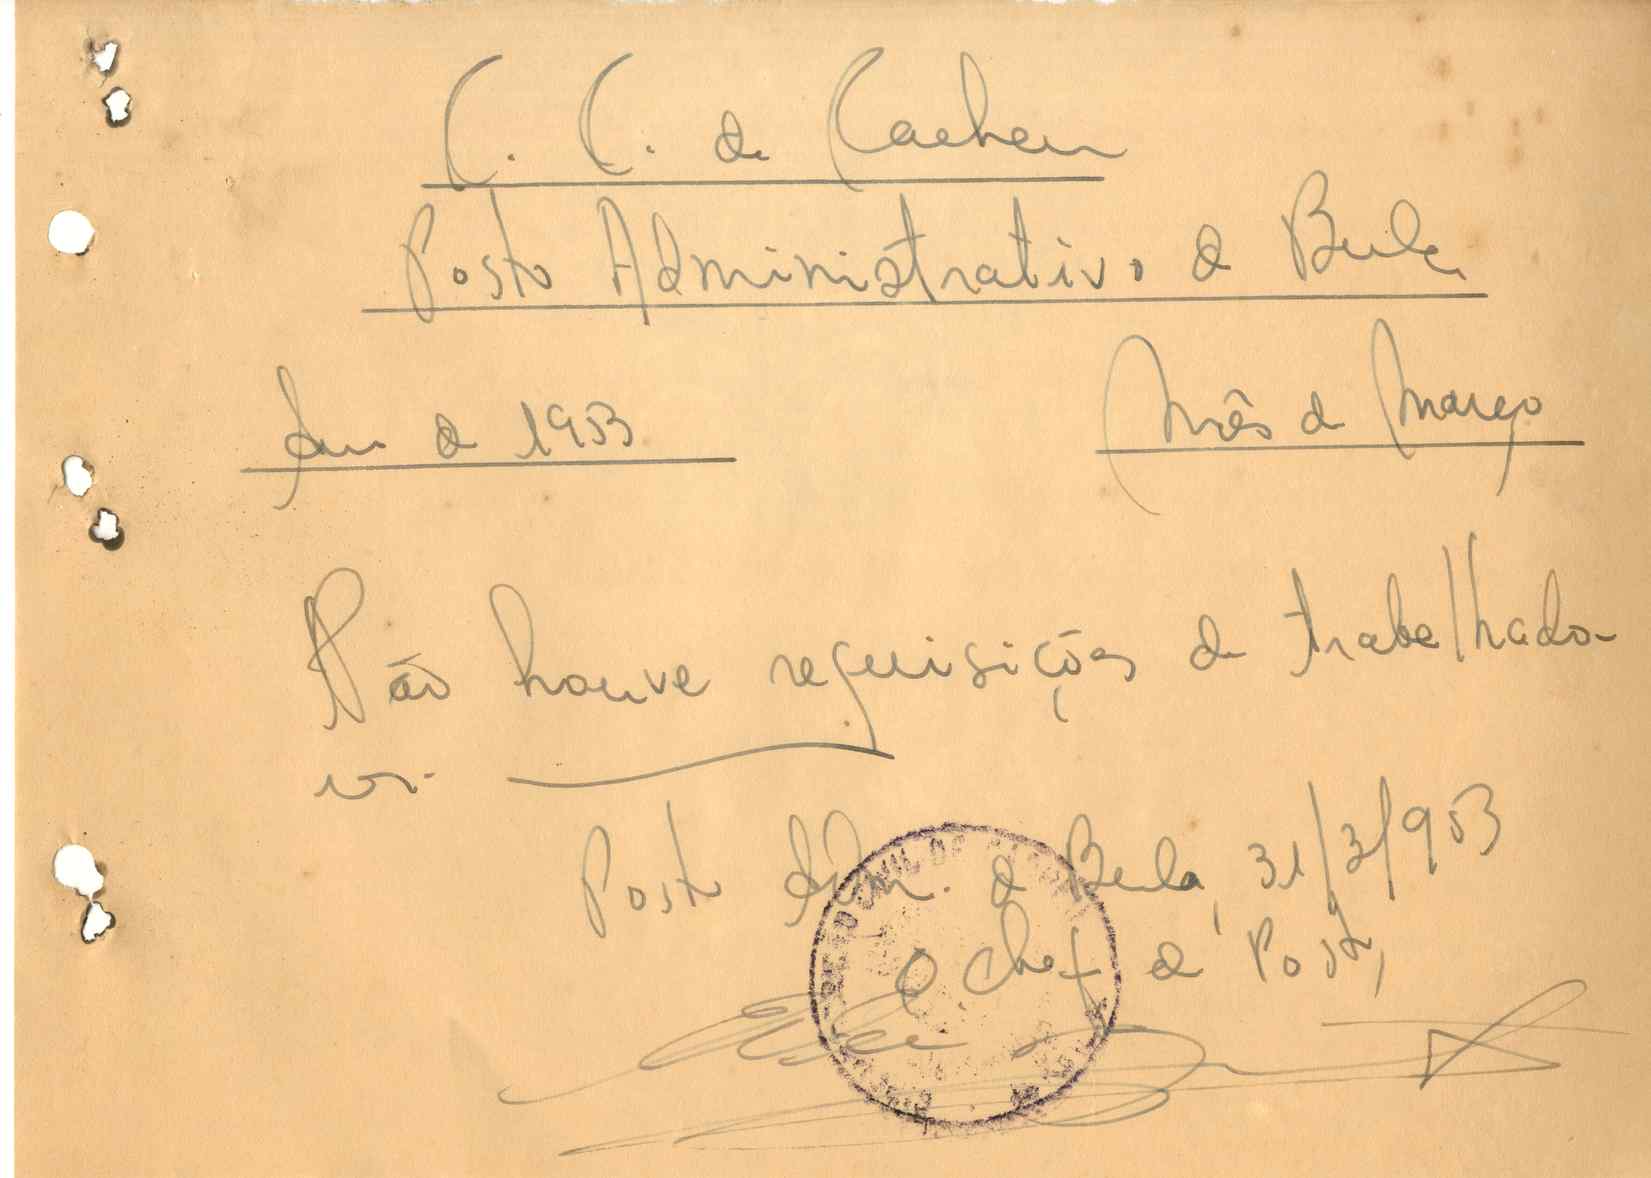 C. C. de Cacheu
Posto Administrativo de Bula
Ano de 1953
Mês de Março
Não houve requisições de trabalhado-
res.
Posto Adm. de Bula, 31/3/953
O Chefe de Posto,